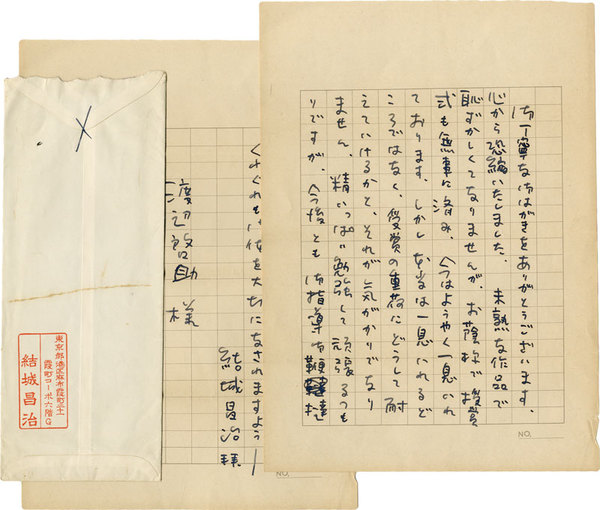 御丁寧なおはがきをありがとうございます。
心から恐縮いたしました。未熟な作品で
恥ずかしくてなりませんが、お蔭様で授賞
式も無事に済み、今はようやく一息いれ
ております。しかし本当は一息いれるど
ころではなく、受賞の重荷にどうして耐
えていけるかと、それが気がかりでなり
ません。精いっぱい勉強して頑張るつも
りですが、今後とも御指導御鞭撻
NO.
くれぐれも御体を大切になされますよう―
結城昌治拝
渡辺啓助様
NO.
東京都港区麻布霞町
霞町コーポ六階G
結城昌治